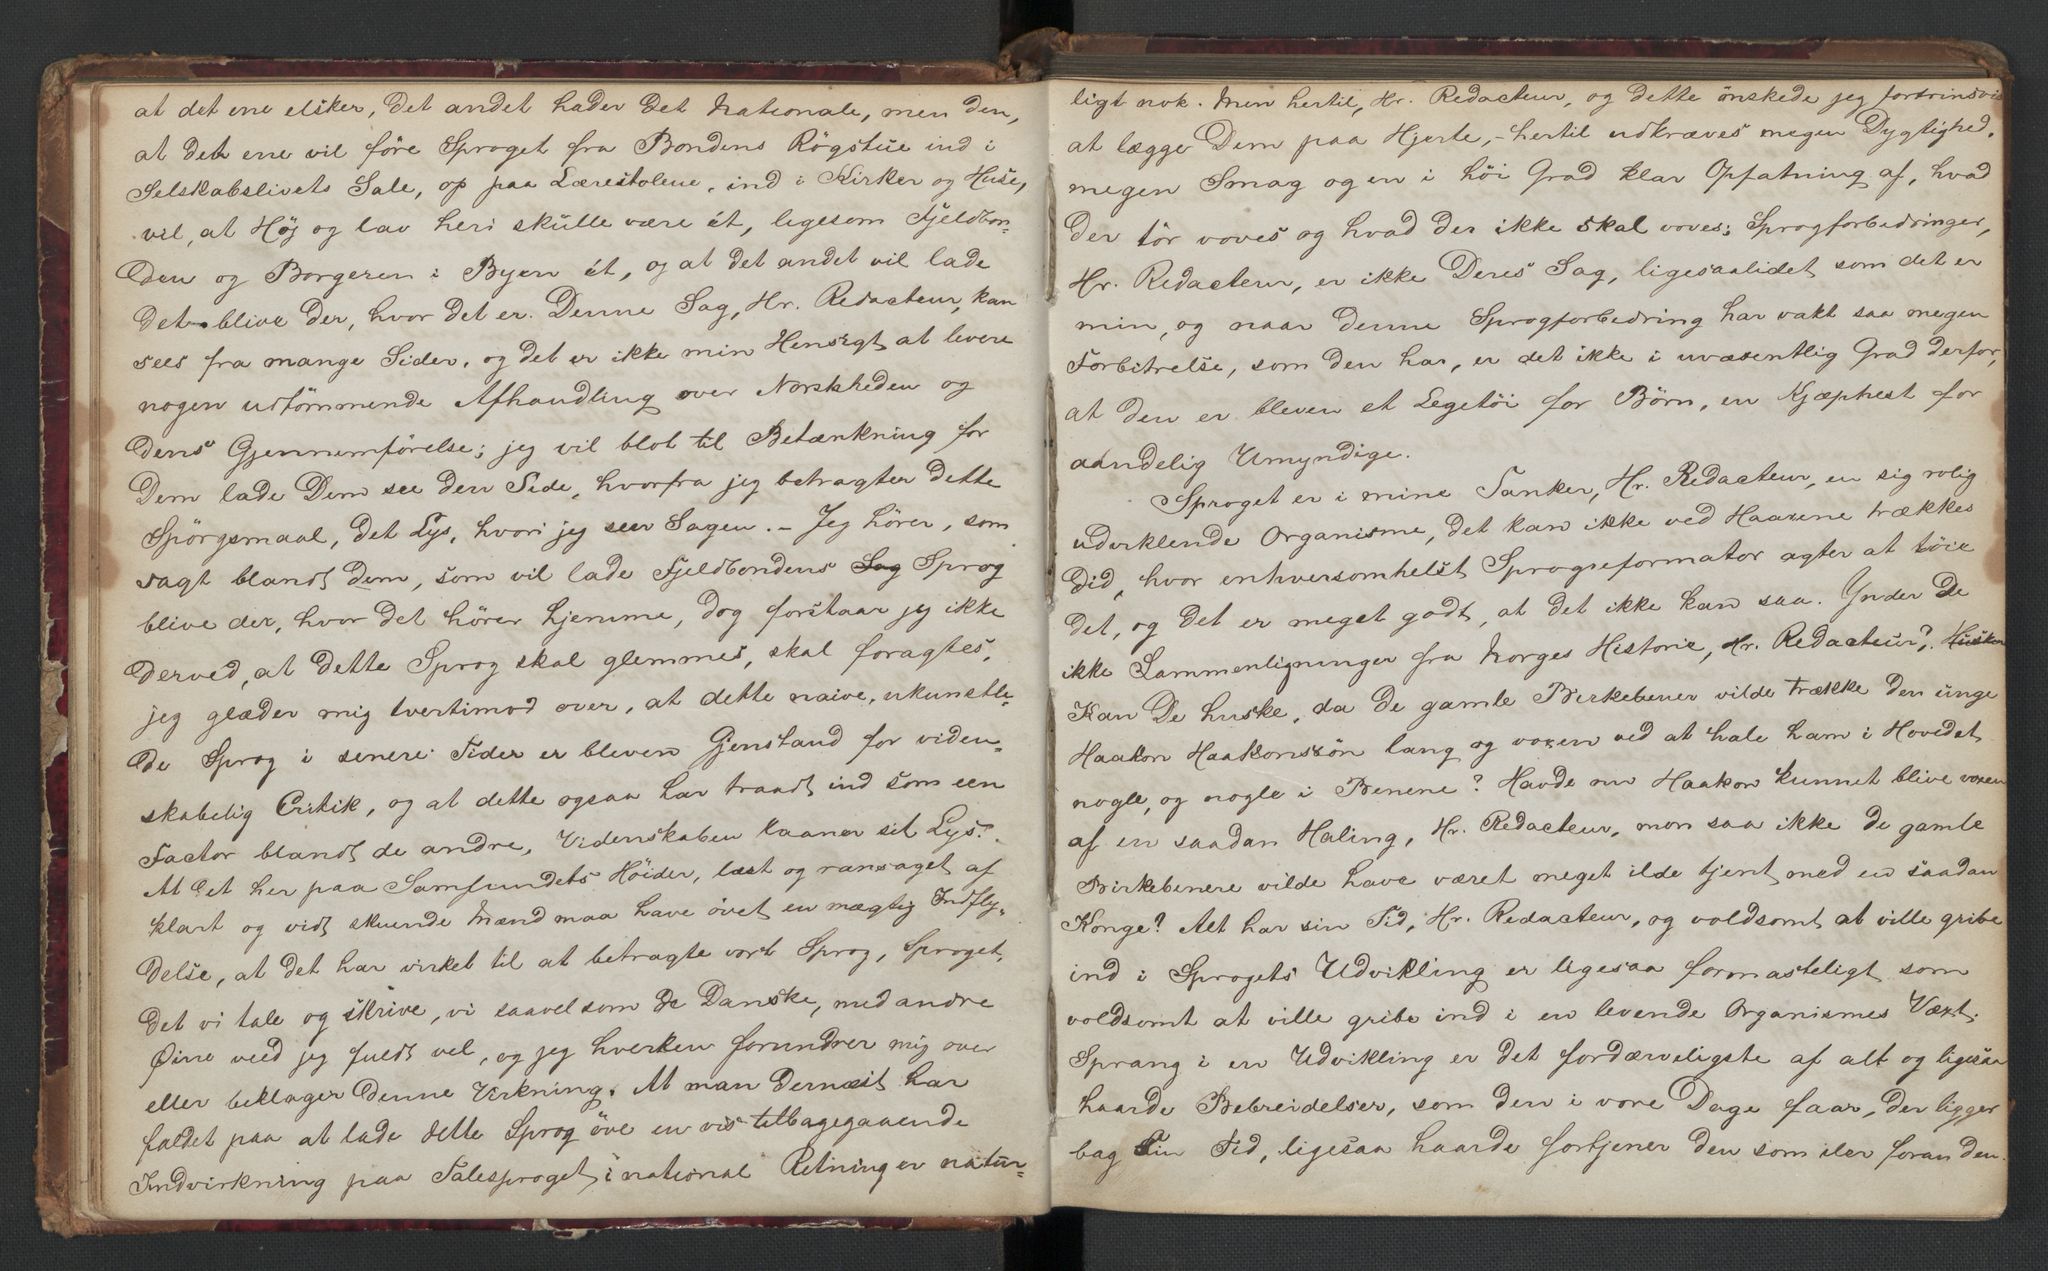 at det ene elsker, det andet hader det Nationale, men den,
at det ene vil före Sproget fra Bondens Rögstue ind i
Selskabslivets Sale, op paa Lærestolene, ind i Kirker og Huse,
vil, at Høj og lav heri skulle være ét, ligesom Fjeldbon-
den og Borgeren i Byen ét, og at det andet vil lade
det blive der, hvor det er. Denne Sag, Hr. Redacteur, kan
sees fra mange Sider, og det er ikke min Hensigt at levere
nogen udtömmende Afhandling over Norskheden og
dens Gjennemförelse; jeg vil blot til Betænkning for
Dem lade Dem see den Side, hvorfra jeg betragter dette
Spörgsmaal, det Lys, hvori jeg seer Sagen. – Jeg hörer, som
sagt blandt dem, som vil lade Fjeldbondens Sag Sprog
blive der, hvor det hörer hjemme, dog forstaar jeg ikke
derved, at dette Sprog skal glemmes, skal foragtes,
jeg glæder mig tvertimod over, at dette naive, ukunstle-
de Sprog i senere Tider er bleven Gjenstand for viden-
skabelig Critik, og at dette ogsaa har traadt ind som een
Factor blandt de andre, Videnskaben laaner sit Lys.
At det her paa Samfundets Höider, læst og ransaget af
klart og vidt skuende Mænd maa have övet en mægtig Indfly-
delse, at det har virket til at betragte vort Sprog, Sproget,
det vi tale og skrive, vi saavelsom de Danske, med andre
Øine veed jeg fuldt vel, og jeg hverken forundrer mig over
eller beklager denne Virkning. At man dernæst har
faldet paa at lade dette Sprog öve en vis tilbagegaaende
Indvirkning paa Talesproget i national Retning er natur-
ligt nok. Men hertil, Hr. Redacteur, og dette önskede jeg fortrinsvis
at lægge Dem paa Hjerte, – hertil udkræves megen Dygtighed,
megen Smag og en i höi Grad klar Opfatning af, hvad
der tör voves og hvad der ikke skal voves; Sprogforbedringer,
Hr. Redacteur, er ikke Deres Sag, ligesaalidet som det er
min, og naar denne Sprogforbedring har vakt saa megen
Forbitrelse, som den har, er det ikke i uvæsentlig Grad derfor,
at den er bleven et Legetöi for Börn, en Kjæphest for
aandelig Umyndige.
Sproget er i mine Tanker, Hr. Redacteur, en sig rolig
udviklende Organisme, det kan ikke ved Haarene trækkes
did, hvor enhversomhelst Sprogreformator agter at töie
det, og det er meget godt, at det ikke kan saa. Ynder De
ikke Sammenligninger fra Norges Historie, Hr. Redacteur? Husker
Kan De huske, da de gamle Birkebener vilde trække den unge
Haakon Haakonssön lang og voxen ved at hale ham i Hovedet
nogle, og nogle i Benene? Havde nu Haakon kunnet blive voxen
af en saadan Haling, Hr. Redacteur, mon saa ikke de gamle
Birkebenere vilde have været meget ilde tjent med en saadan
Konge? Alt har sin Tid, Hr. Redacteur, og voldsomt at ville gribe
ind i Sprogets Udvikling er ligesaa formasteligt som
voldsomt at ville gribe ind i en levende Organismes Væxt.
Sprang i en Udvikling er det fordærveligste af alt og ligesaa
haarde Bebreidelser, som den i vore Dage faar, der ligger
bag sin Tid, ligesaa haarde fortjener den som iler foran den.